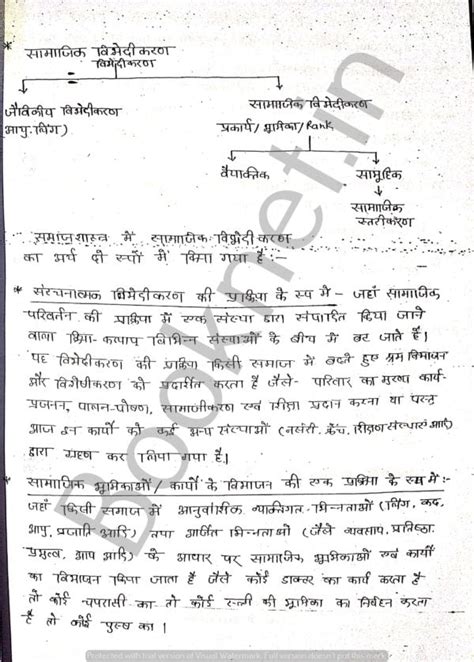 * सामाजिक विभेदीकरण
विभेदीकरण
जैवकीय विभेदीकरण
आयु, लिंग)
सामाजिक विभेदीकरण
प्रकार्य/भूमिका/Rank
वैयाक्तिक
सामुहिक
सामाजिक
स्तरीकरण
समाजशास्त्र में सामाजिक विभेदीकरण
का अर्थ दो रूपों में किया गया है :-
* संरचनात्मक विभेदीकरण की प्रक्रिया के रूप में - जहाँ सामाजिक
परिवर्तन की प्रक्रिया में एक संस्था द्वारा संपादित किया जाने
वाला क्रिया-कलाप विभिन्न संस्थाओं के बीच में बट जाते है।
यह विभेदीकरण की प्रक्रिया किसी समाज में बढ़ते हुए श्रम विभाजन
और विशेषीकरण को प्रदर्शित करता है जैसे- परिवार का मुख्य कार्य-
प्रजनन, पालन-पोषण, सामाजीकरण एवं शिक्षा प्रदान करना था परन्तु
आज इन कार्यो को कई अन्य संस्थाओं (नर्सरी, क्रेच, शिक्षण संस्थाएं आदि)
द्वारा ग्रहण कर लिया गया है।
* सामाजिक भूमिकाओं/कार्यो के विभाजन की एक प्रक्रिया के रूप में:-
जहाँ किसी समाज में आनुवांशिक व्यक्तिगत भिन्नताओं (लिंग, कद,
आयु, प्रजाति आदि) तथा अर्जित भिन्नताओं (जैसे व्यवसाय, प्रतिष्ठा,
प्रभुत्व, आय आदि) के आधार पर सामाजिक भूमिकाओं एवं कार्यो
का विभाजन किया जाता है जैसे कोई डाक्टर का कार्य करता है
तो कोई चपरासी का तो कोई स्त्री की भूमिका का निर्वहन करता
है तो कोई पुरुष का।
Booknet.in
Protected with trial version of Visual Watermark. Full version doesn't put this mark.